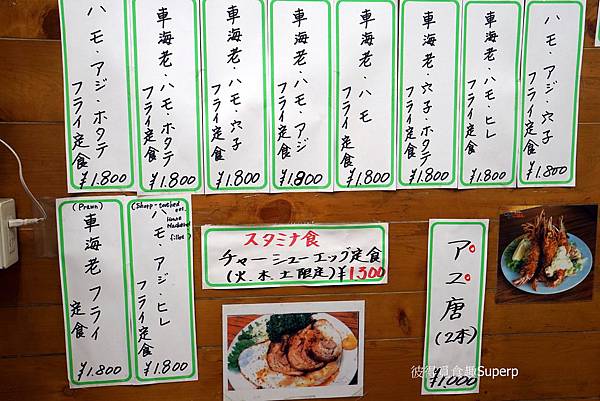 ハモ・アジ・ホタテ
フライ定食
¥1.800
車海老・ハモ・ホタテ
フライ定食
¥1.800
車海老・ハモ・穴子
フライ定食
¥1.800
車海老・ハモ・アジ
フライ定食
¥1.800
車海老・ハモ
フライ定食
¥1.800
車海老・穴子・ホタテ
フライ定食
¥1.800
車海老・ハモ・ヒレ
フライ定食
¥1.800
ハモ・アジ・穴子
フライ定食
¥1.800
(Prawn)
車海老フライ
定食
¥1.800
eel.
Horse
Mackerel
fillet)
ハモ・アジ・ヒレ
フライ定食
¥1.800
スタミナ食
チャーシューエッグ定食
(火.木.土限定)¥1300
唐
(2本)
¥1000
Superp